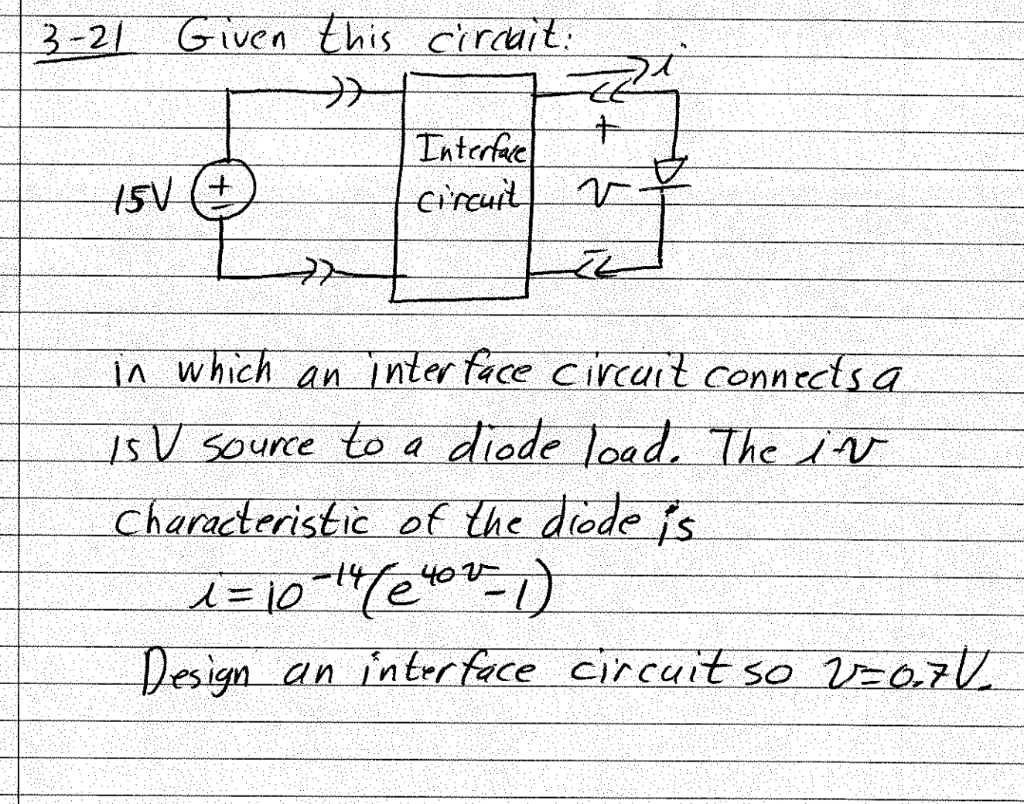 3-21 Given this circuit:
i
+
Interface
15V + -
circuit
v
-
in which an interface circuit connects a
15V source to a diode load. The i-v
characteristic of the diode is
i=10^-14(e^40v-1)
Design an interface circuit so v=0.7V.